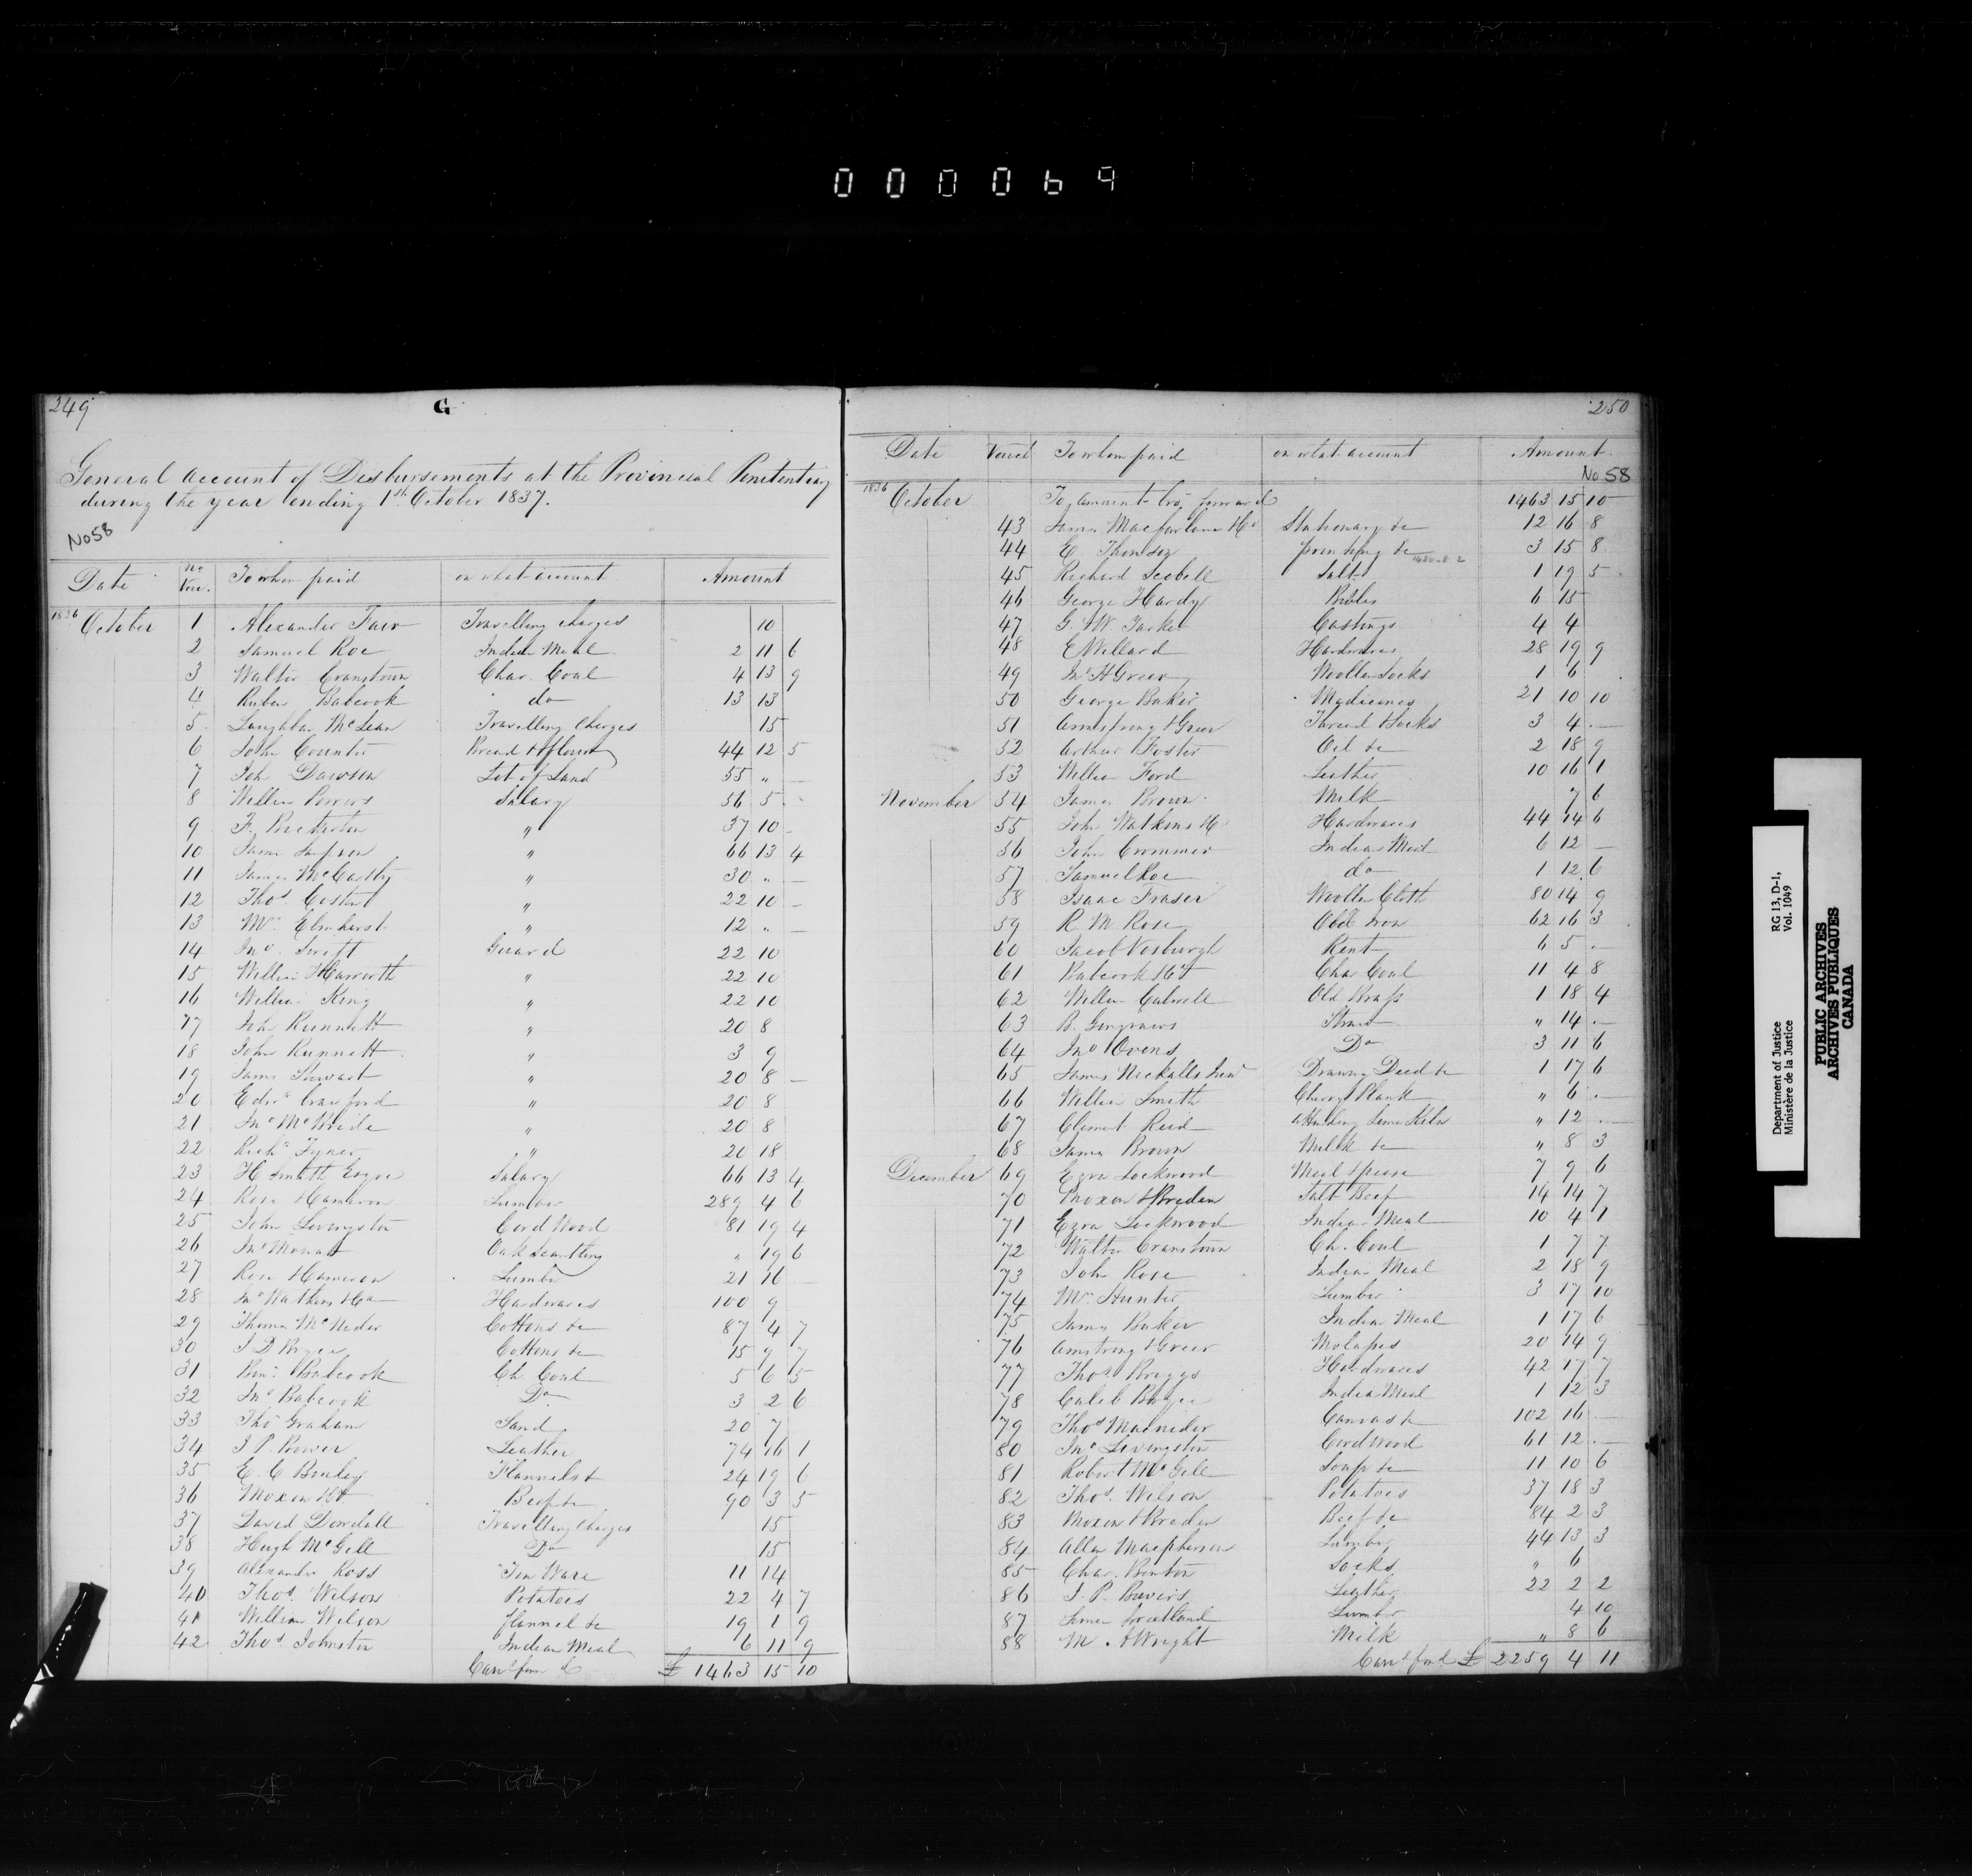 000069
249
G
General Account of Disbursements at the Provincial Penitentiary
during the year ending 1st October 1837.
No 58
Date No Vou. To whom paid on what account Amount
1836 October 1 Alexander Travelling charges 10
2 Samuel Roe Indian Meal 2 11 6
3 Walter Cranstown Char. Coal 4 13 9
4 Ruben Babcock do 13 13
5 Laughlan McLean Travelling Charges 15
6 John Counter Bread & flour 44 12 5
7 John Dawson Lot of Land 55 " —
8 William Powers Salary 56 5
9 F. " 37 10 —
10 James Sampson " 66 13 4
11 James McCarthy " 30 " —
12 Thos. Costen " 22 10 —
13 Mrs Elmhirst " 12 " —
14 Jno. Swift Guard 22 10
15 William " 22 10
16 William King " 22 10
17 John " 20 8
18 John " 3 9
19 James Stewart " 20 8 —
20 Edwd Crawford " 20 8
21 Jno McBride " 20 8
22 Richd Tyner " 20 18
23 H Smith Esqre Salary 66 13 4
24 Rose & Cameron Lumber 289 4 6
25 John Livingston Cord Wood 81 19 4
26 Jno Mowat Oak Scantling " 19 6
27 Rose & Cameron Lumber 21 16 —
28 Jno Watkins & Co Hardwares 100 9
29 Thomas Cottons &c 87 4 7
30 Cottons &c 15 9 7
31 Babcock Ch Coal 5 6 5
32 Jno Babcock Do 3 2 6
33 Thos Graham Sand 20 7
34 J P. Bower Leather 74 16 1
35 E. C Flannels & 24 19 6
36 Moxon & Co Beef &c 90 3 5
37 David Dowdall Travelling Charges 15
38 Hugh McGill Do 15
39 Alexander Ross Tin Ware 11 14
40 Thos. Wilson Potatoes 22 4 7
41 William Wilson flannel &c 19 1 9
42 Thos. Johnston Indian Meal 6 11 9
Carrd forwd £ 1463 15 10
250
Date Vouch To whom paid on what account Amount
No 58
1836 October To Amount bro. forward 1463 15 10
43 James Macfarlane & Co Stationary &c 12 16 8
44 E. Thomson printing &c 3 15 8
1480.8.2
45 Richard Scobell Salts 1 19 5
46 George Hardy Bibles 6 15
47 G. W. Castings 4 4
48 E Willard Hardwares 28 19 9
49 Jno H Greer Woollen Socks 1 6
50 George Baker Medicines 21 10 10
51 Armstrong & Greer Thread & Socks 3 4 —
52 Arthur Foster Oil &c 2 18 9
53 William Ford Leather 10 16 1
November 54 James Brown Milk 7 6
55 John Watkins & Co Hardwares 44 14 6
56 John Indian Meal 6 12 —
57 Samuel Roe do 1 12 6
58 Isaac Fraser Woollen Cloth 80 14 9
59 R. M. Rose Old Iron 62 16 3
60 Jacob Vosburgh Rent 6 5 —
61 Babcock & Co Cha Coal 11 4 8
62 William Old Brass 1 18 4
63 B. Straw " 14 —
64 Jno Ovens Do 3 11 6
65 James Nickalls Junr Drawing Deed &c 1 17 6
66 William Smith Cherry Plank " 6 —
67 Clement Reid attending Lime Kiln " 12 —
68 James Brown Milk &c " 8 3
December 69 Ezra Lockwood Meal & pease 7 9 6
70 Moxon & Breden Salt Beef 14 14 7
71 Ezra Lockwood Indian Meal 10 4 1
72 Walter Cranstown Ch. Coal 1 7 7
73 John Rose Indian Meal 2 18 9
74 Mr. Hunter Lumber 3 17 10
75 James Baker Indian Meal 1 17 6
76 Armstrong & Greer Molasses 20 14 9
77 Thos. Briggs Hardwares 42 17 7
78 Caleb Indian Meal 1 12 3
79 Thos Canvas & 102 16 —
80 Jno. Livingston Cord wood 61 12 —
81 Robert McGill Soap &c 11 10 6
82 Thos. Wilson Potatoes 37 18 3
83 Moxon & Breden Beef &c 84 2 3
84 Allan Macpherson Lumber 44 13 3
85 Chas. Socks " 6
86 J. P. Leather 22 2 2
87 Lumber 4 10
88 M. Wright Milk " 8 6
Carrd ford £ 2259 4 11
Department of Justice
Ministère de la Justice
RG 13, D-1,
Vol. 1049
PUBLIC ARCHIVES
ARCHIVES PUBLIQUES
CANADA